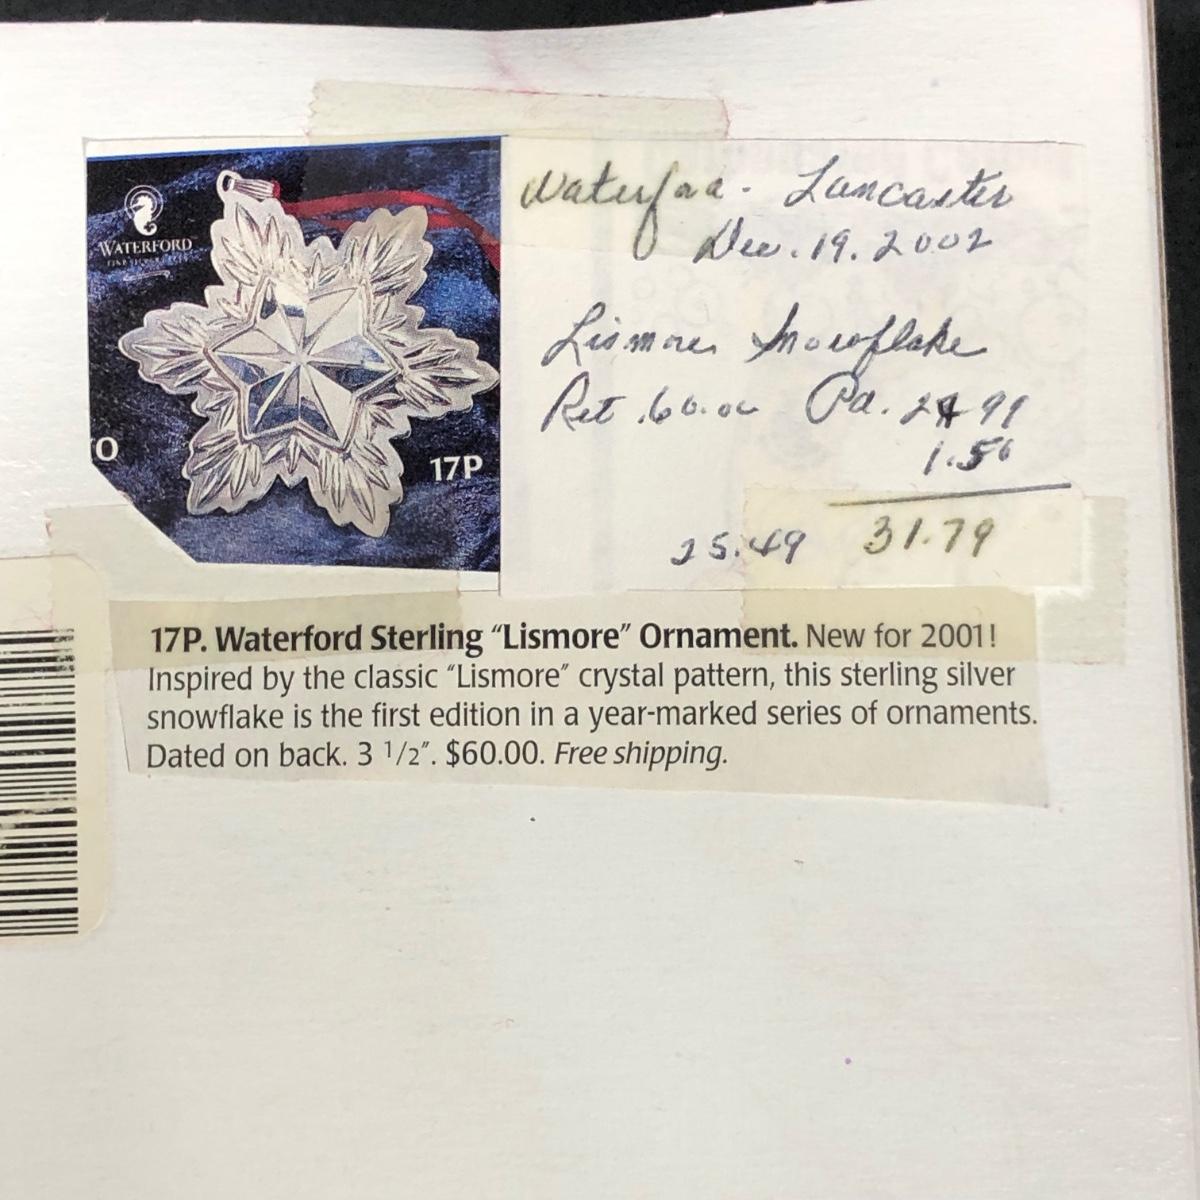 WATERFORD
O
17P
Waterford - Lancaster
Dec. 19. 2002
Lismore Snowflake
Ret. 60.00 Pd. 99
1.50
25.49 31.79
17P. Waterford Sterling “Lismore” Ornament. New for 2001!
Inspired by the classic “Lismore” crystal pattern, this sterling silver
snowflake is the first edition in a year-marked series of ornaments.
Dated on back. 3 1/2″. $60.00. Free shipping.